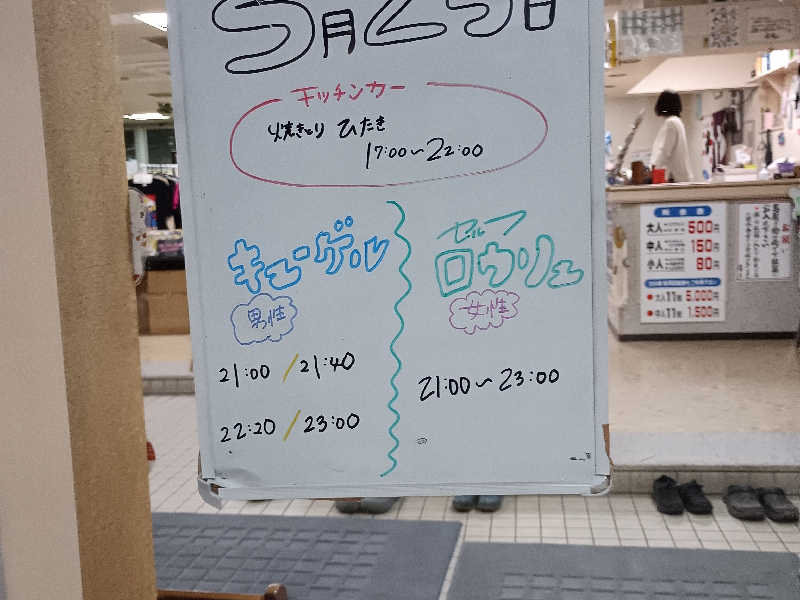 5月25日
キッチンカー
焼きとり ひたき
17:00～22:00
キューゲル
男性
21:00 / 21:40
22:20 / 23:00
セルフ
ロウリュ
女性
21:00～23:00
料金表
大人 500円
中人 150円
小人 80円
●大人11枚 5,000円
●中人11枚 1,500円
お願い